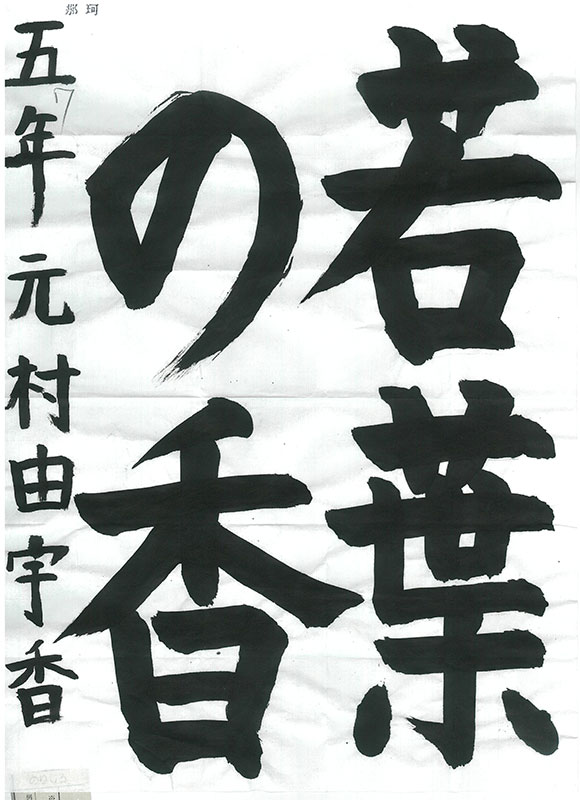 若葉
の香
五年 元村由宇香
7